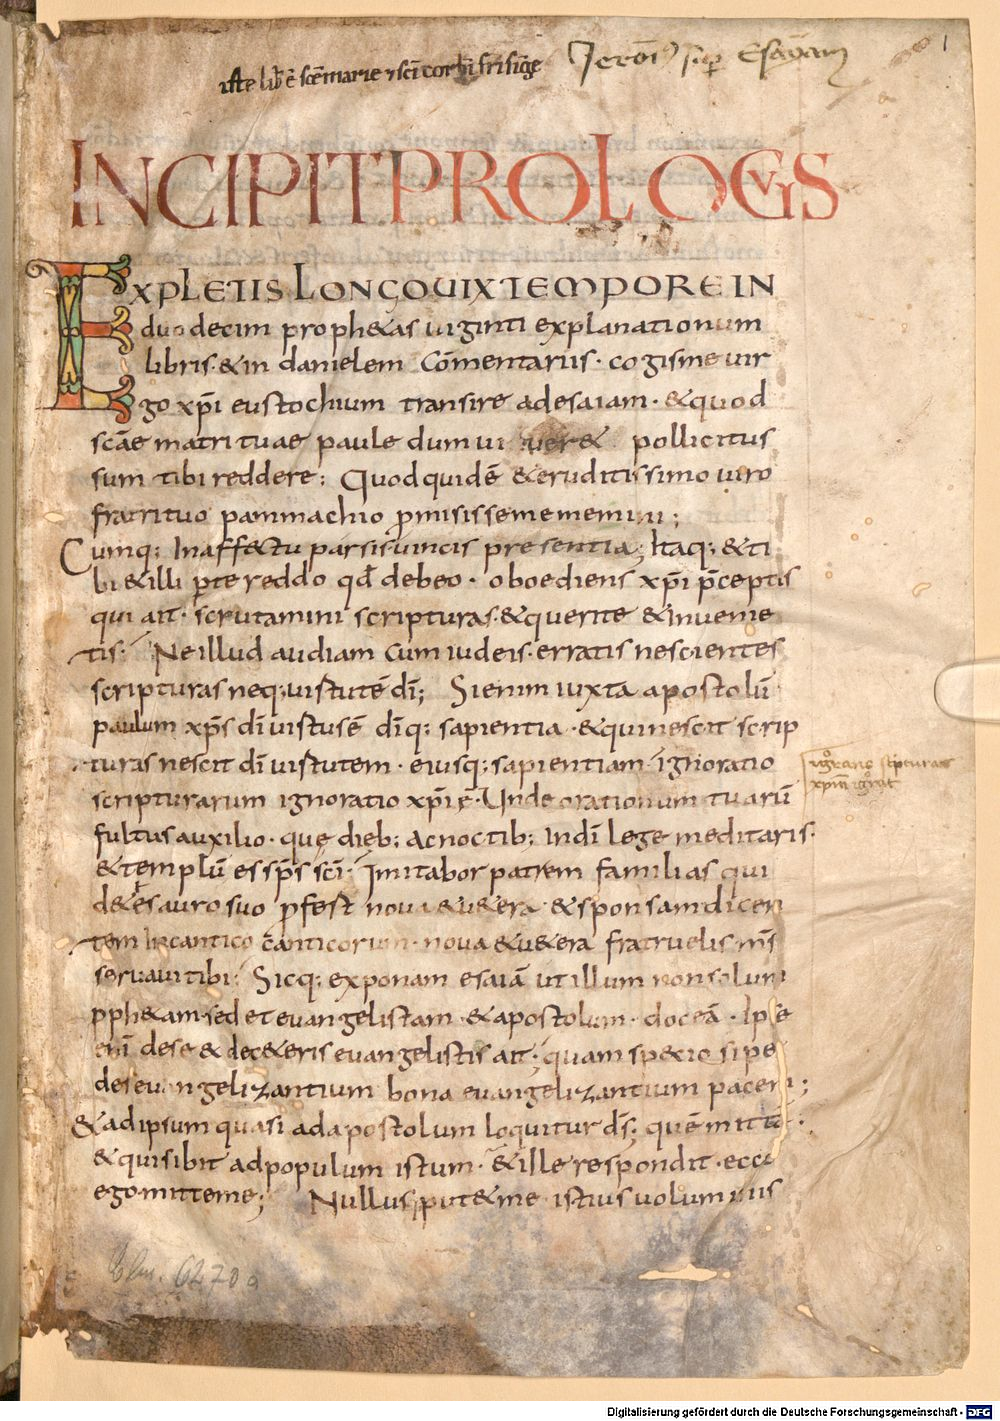 iste lib̄ ē scē marie ⁊ sci corb̄ frising̅e
Jeroni⁹ sup̱ Esayam
1
INCIPIT PROLOGVS
EXPLETIS LONGO UIX TEMPORE IN
duodecim proph&as uiginti explanationum
libris · & in danielem Cōmentariis · cogis me uir
go xp̄i eustochium transire ad esaiam · & quod
scāe matri tuae paule dum uiuer& pollicitus
sum tibi reddere; Quod quidē & eruditissimo uiro
fratri tuo pammachio p̱misisse me memini;
Cumq; In aff&u par sis uincis presentia; Itaq; & ti
bi & illi p̱ te reddo qđ debeo · oboediens xp̄i p̄ceptis
qui ait · scrutamini scripturas · & querite & inuenie
tis; Ne illud audiam cum iudeis · erratis nescientes
scripturas neq; uirtutē dī; Si enim iuxta apostolū
paulum xp̄s dī uirtus ē dīq; sapientia · & qui nescit scrip
turas nescit dī uirtutem · eiusq; sapientiam · ignoratio
scripturarum ignoratio xp̄i ē · Unde orationum tuarū
fultus auxilio · quę dieb; ac noctib; In dī lege meditaris ·
& templū es sp̄s sc̄i · Imitabor patrem familias qui
de thesauro suo p̱fert noua & u&era · & sponsam dicen
tem In cantico canticorum · noua & u&era fratruelis m̄s
seruaui tibi; Sicq; exponam esaiā ut illum non solum
pph&am · sed et euangelistam · & apostolum · doceā · Ipse
eni de se & de c&eris euangelistis ait; quam speciosi pe
des euangelizantium bona euangelizantium pacem;
& ad ipsum quasi ad apostolum loquitur ds̄; quē mittā ·
& quis ibit ad populum istum · & ille respondit · ecce
ego mitte me; Nullus put& me istius uoluminis
ignorans scripturas
xpm̄ ignorat
Clm. 6270a
Digitalisierung gefördert durch die Deutsche Forschungsgemeinschaft - DFG